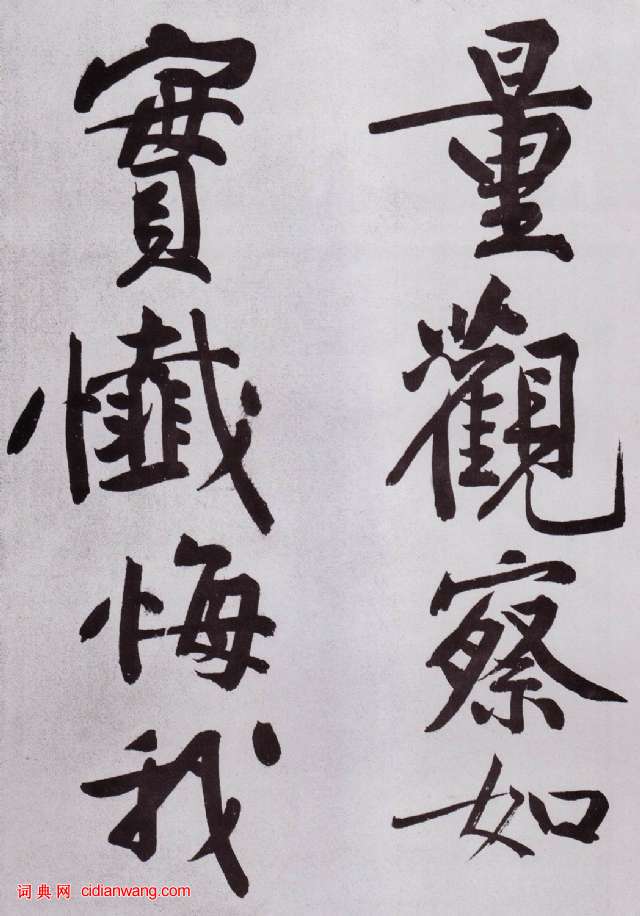 量觀察如
實懺悔我
词典网 cidianwang.com